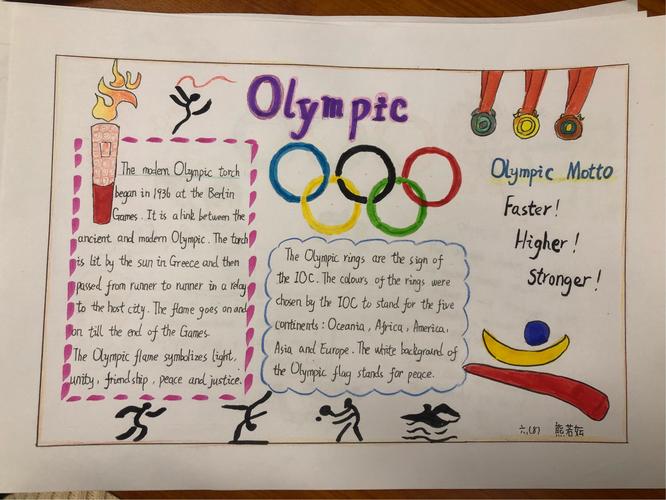 Olympic
The modern Olympic torch
began in 1936 at the Berlin
Games. It is a link between the
ancient and modern Olympic. The torch
is lit by the sun in Greece and then
passed from runner to runner in a relay
to the host city. The flame goes on and
on till the end of the Games.
The Olympic flame symbolizes light,
unity, friendship, peace and justice.
The Olympic rings are the sign of
the IOC. The colours of the rings were
chosen by the IOC to stand for the five
continents: Oceania, Africa, America,
Asia and Europe. The white background of
the Olympic flag stands for peace.
Olympic Motto
Faster!
Higher!
Stronger!
六.(8) 熊若妘